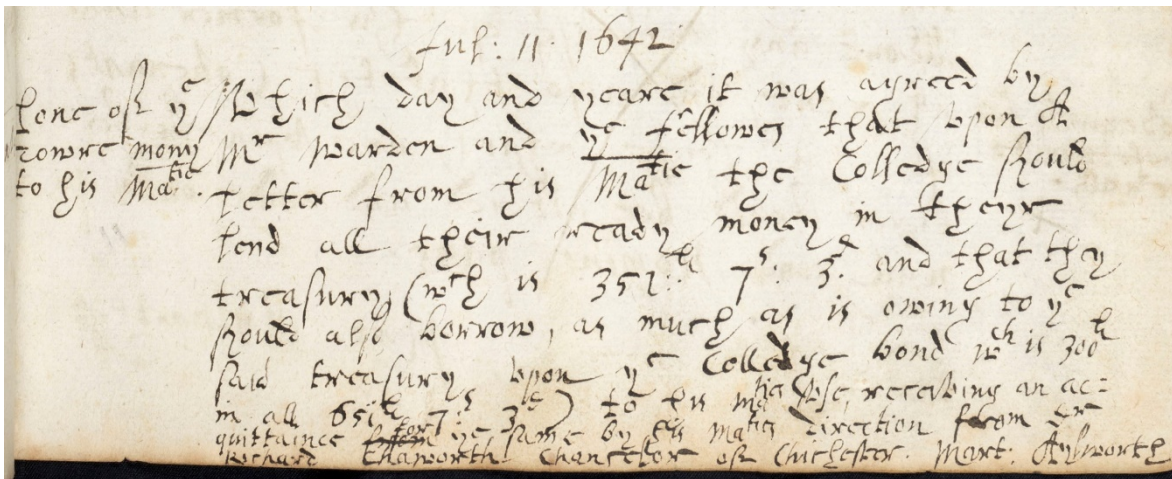 Jul: 11. 1642
Lone of yᵉ
rowre mony
to his Maᵗⁱᵉ.
Which day and yeare it was agreed by
Mʳ Warden and yᵉ fellowes that upon A
letter from his Maᵗⁱᵉ the Colledge should
lend all their ready money in theyr
treasury (wᶜʰ is 351ˡⁱ: 7ˢ: 3ᵈ. and that they
should also borrow, as much as is owing to yᵉ
said treasury upon yᵉ Colledge bond wᶜʰ is 300ˡⁱ
in all 651ˡⁱ 7ˢ 3ᵈ) to his Maᵗⁱᵉˢ use, receiving an ac=
quittance for yᵉ same by his Maᵗⁱᵉˢ direction from Dʳ
Richard Chaworth Chancelor of Chichester. Mart: Aylworth